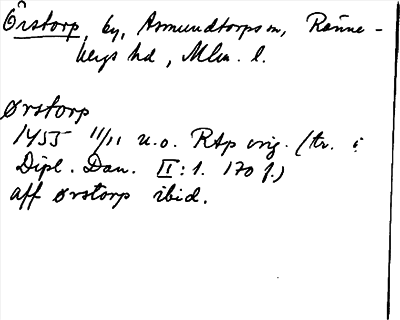 Örstorp, by, Asmundtorps sn, Rönne-
bergs hd, Mlm. l.
Ørstorp
1455 11/11 u.o. Rtp orig. (tr. i
Dipl. Dan. II:1. 170 f.)
aff Ørstorp ibid.